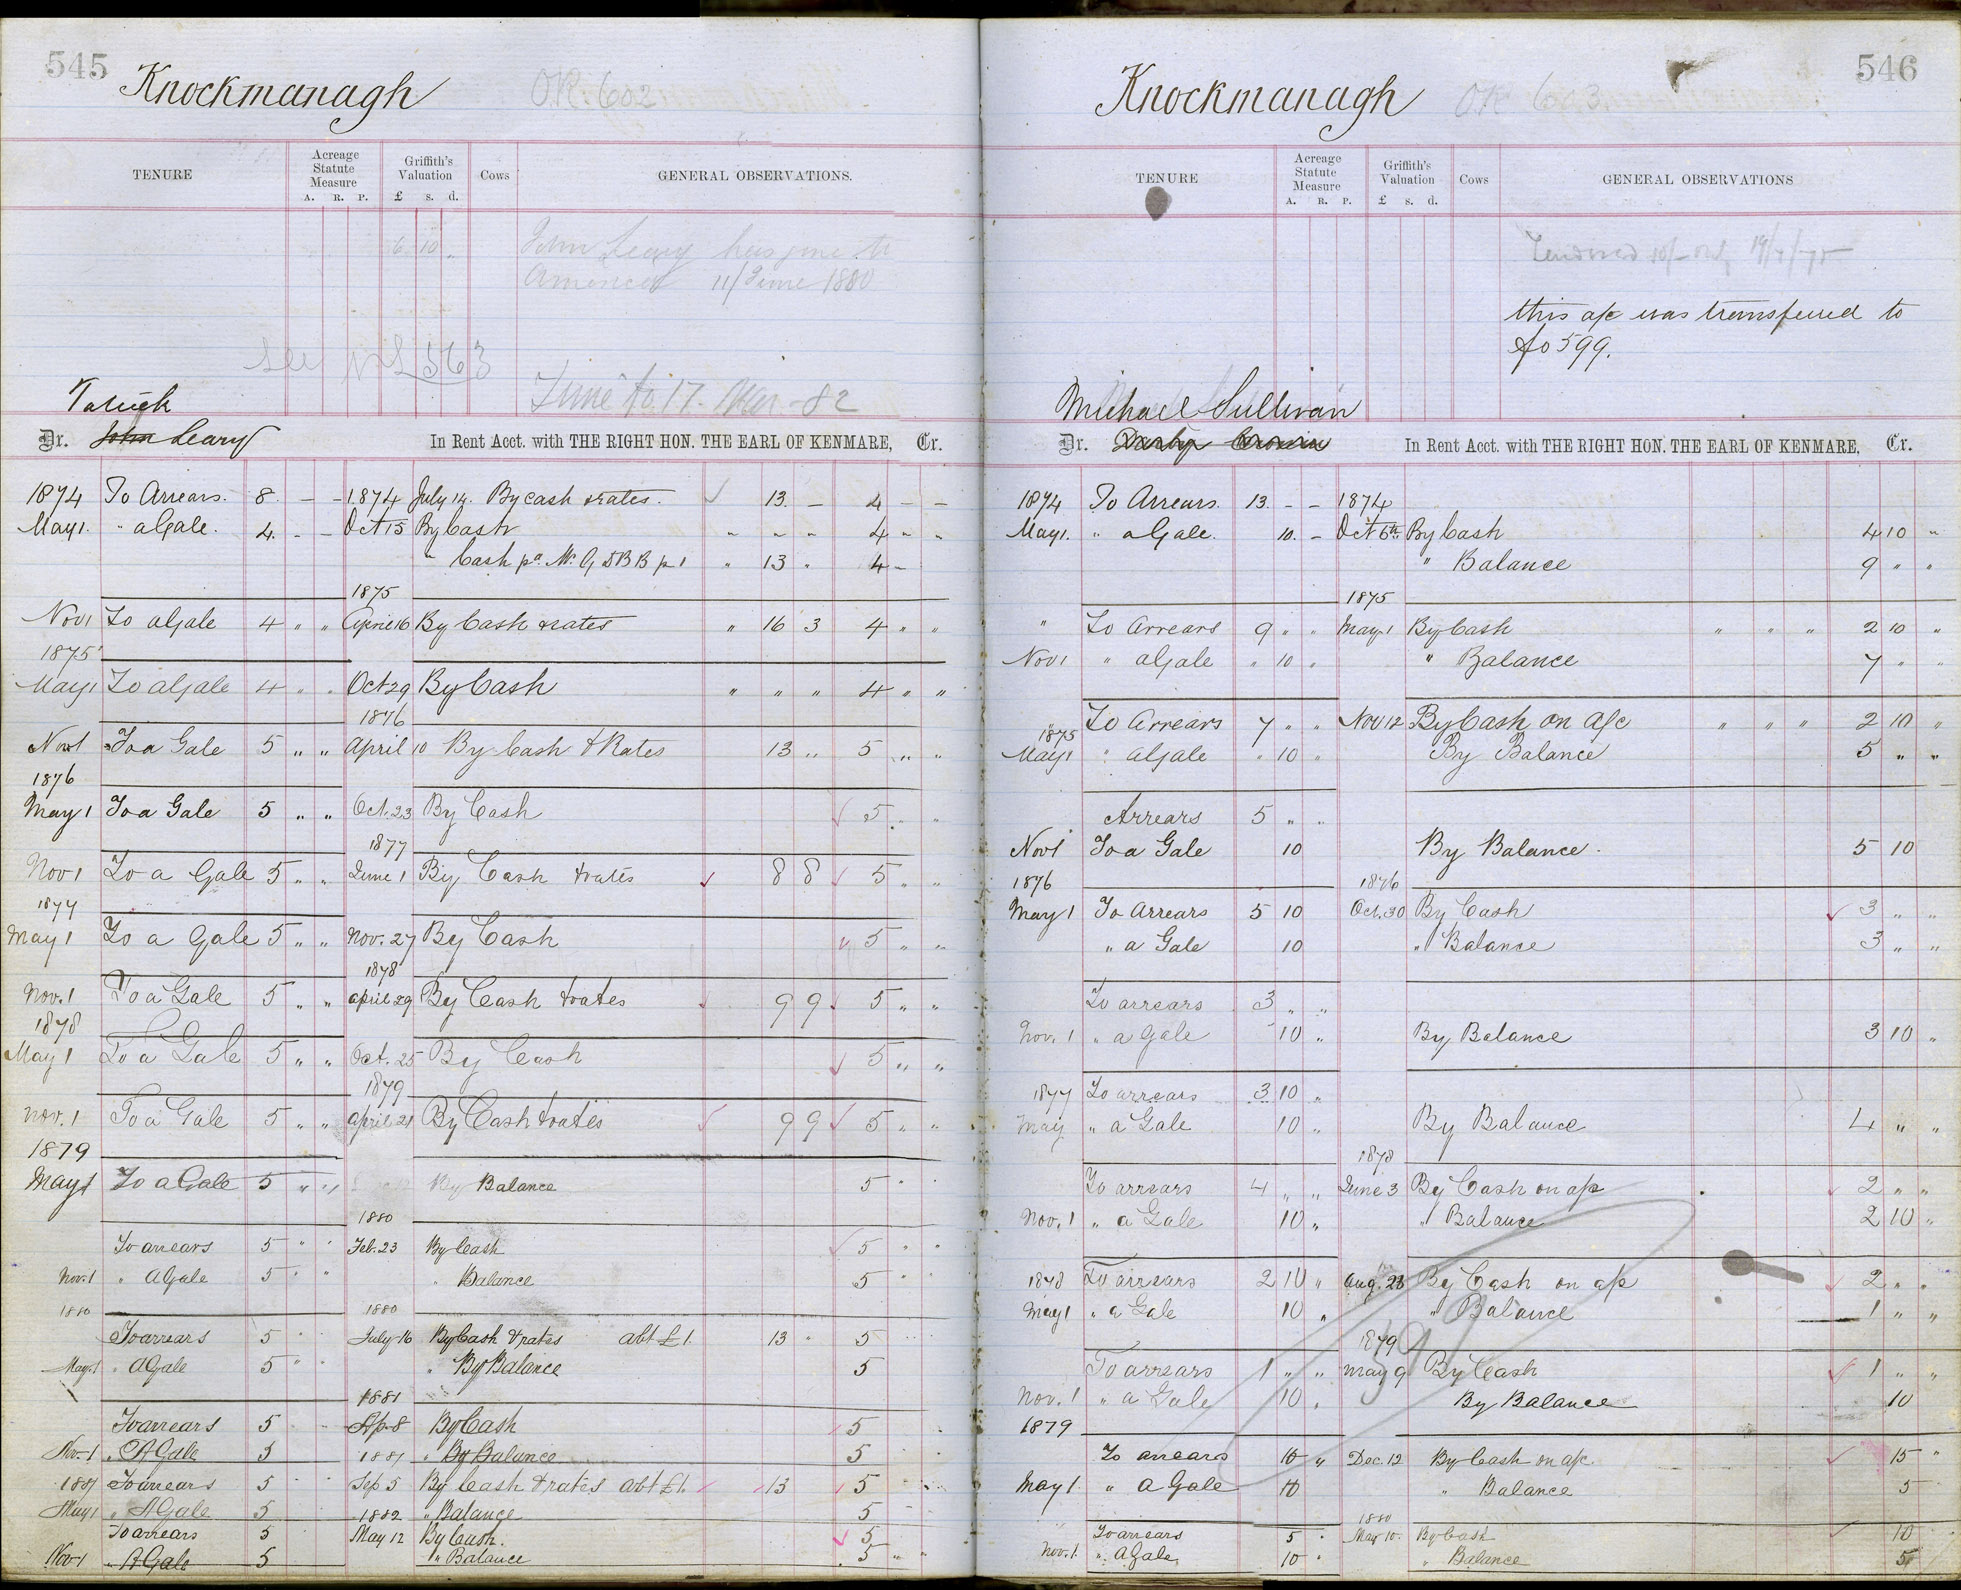 545
Knockmanagh
OR. 602
TENURE
Acreage Statute Measure
A. R. P.
Griffith's Valuation
£ s. d.
Cows
GENERAL OBSERVATIONS.
6 10 "
John Leary has gone to
America 11/June 1880
See 563
Time to 17. Mar -82
Patrick
Dr. John Leary In Rent Acct. with THE RIGHT HON. THE EARL OF KENMARE, Cr.
1874 To Arrears. 8 - - 1874 July 14. By cash & rates. 13. - 4 - -
May 1. " a Gale. 4. - - Oct 15 By Cash " " " 4 " "
" Cash pd. Mr. G D B B p 1 " 13 " 4 -
1875
Nov 1 To a Gale 4 " " April 16 By Cash & rates " 16 3 4 " "
1875
May 1 To a Gale 4 " " Oct 29 By Cash " " " 4 " "
1876
Nov 1 To a Gale 5 " " April 10 By Cash & Rates 13 " 5 " "
1876
May 1 To a Gale 5 " " Oct. 23 By Cash 5 " "
1877
Nov 1 To a Gale 5 " " June 1 By Cash & rates 8 8 5 " "
1877
May 1 To a Gale 5 " " Nov. 27 By Cash 5 " "
1878
Nov. 1 To a Gale 5 " " April 29 By Cash & rates 9 9 5 " "
1878
May 1 To a Gale 5 " " Oct. 25 By Cash 5 " "
1879
Nov. 1 To a Gale 5 " " April 21 By Cash & rates 9 9 5 " "
1879
May 1 To a Gale 5 " " By Balance 5 " "
1880
To arrears 5 " " Feb. 23 By Cash 5 " "
Nov. 1 " A Gale 5 " " " Balance 5 " "
1880 1880
To arrears 5 " " July 16 By Cash & rates abt £1. 13 " 5 " "
May 1 " A Gale 5 " " " By Balance 5
1881
To arrears 5 Ap. 8 By Cash 5
Nov. 1 " A Gale 5 1881 " By Balance 5
1881 To arrears 5 Sep 5 By Cash & rates abt £1. 13 5
May 1 " A Gale 5 1882 " Balance 5
To arrears 5 May 12 By Cash. 5
Nov 1 " A Gale 5 " Balance 5 " "
546
Knockmanagh
OR 603
TENURE
Acreage Statute Measure
A. R. P.
Griffith's Valuation
£ s. d.
Cows
GENERAL OBSERVATIONS
Tendered 10/- only
this a/c was transferred to
fo 599.
Michael Sullivan
Dr. In Rent Acct. with THE RIGHT HON. THE EARL OF KENMARE, Cr.
1874 To Arrears. 13. - - 1874
May 1. " a Gale. 10. - Oct 6th By Cash 4 10 "
" Balance 9 " "
1875
" To Arrears 9 " " May 1 By Cash " " " 2 10 "
Nov 1 " a Gale " 10 " " Balance 7 " "
1875 To Arrears 7 " " Nov 12 By Cash on a/c " " " 2 10 "
May 1 " a Gale " 10 " By Balance 5 " "
Arrears 5 " "
Nov 1 To a Gale 10 By Balance. 5 10
1876 1876
May 1 To Arrears 5 10 Oct. 30 By Cash 3 " "
" a Gale 10 " Balance 3 " "
To arrears 3 " "
Nov. 1 " a Gale 10 " By Balance 3 10 "
1877 To arrears 3 10 "
May " a Gale 10 " By Balance 4 " "
1878
To arrears 4 " " June 3 By Cash on a/c 2 " "
Nov. 1 " a Gale 10 " " Balance 2 10 "
1878 To arrears 2 10 " Aug. 28 By Cash on a/c 2 " "
May 1 " a Gale 10 " " Balance 1 " "
1879
To arrears 1 " " May 9 By Cash 1 " "
Nov. 1 " a Gale 10 " By Balance 10
1879
To arrears 10 " Dec. 12 By Cash on a/c 15 "
May 1 " a Gale 10 " Balance 5
1880
To arrears 5 " May 10. By Cash 10
Nov. 1 " A Gale 10 " " Balance 5